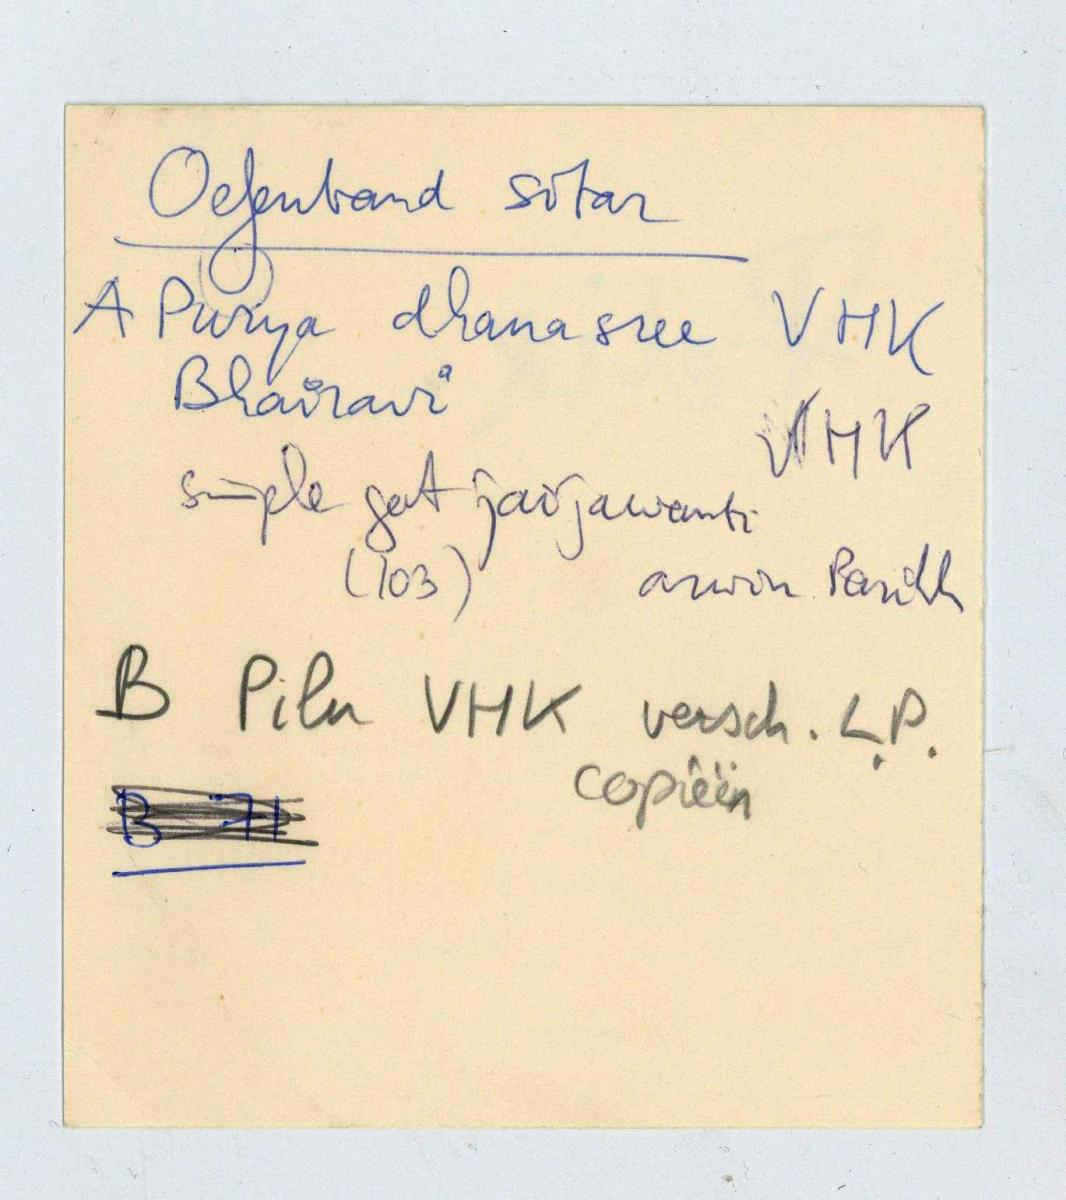 Oefenband sitar
A Purya dhanasree VHK
Bhairavi
VHK
simple gat jaijawanti
(103) arvin Parikh
B Pilu VHK versch. L.P.
copiëen
B 71